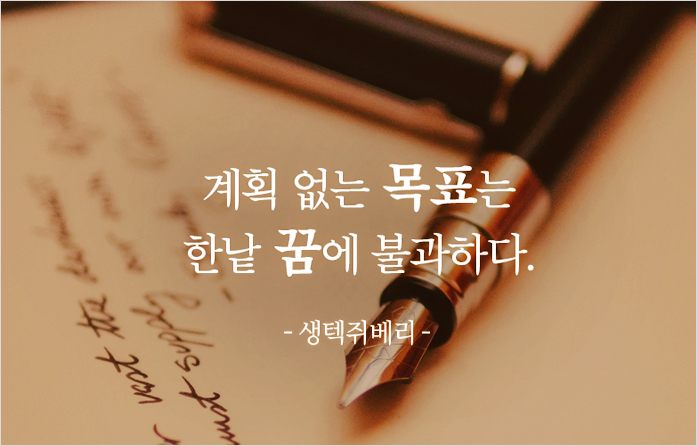 계획 없는 목표는
한낱 꿈에 불과하다.
- 생텍쥐베리 -
vast the
must supply